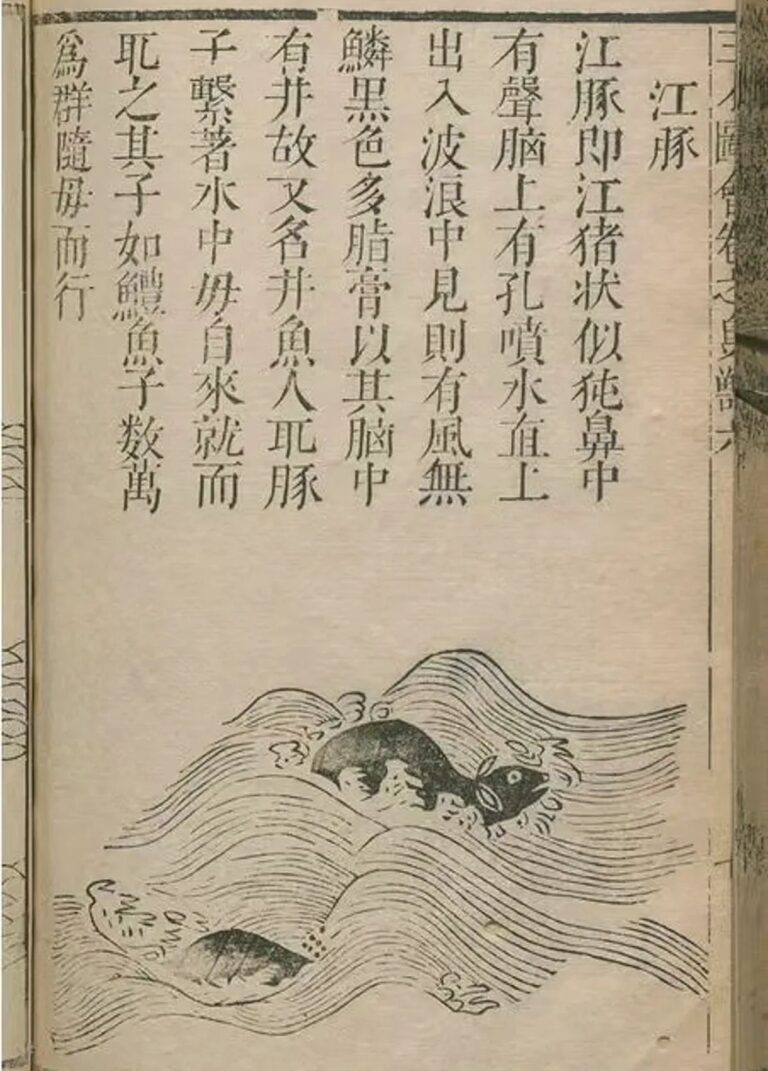 三才圖會卷之鳥獸六
江豚
江豚即江猪状似㹠鼻中
有聲脑上有孔噴水直上
出入波浪中見則有風無
鱗黑色多脂膏以其脑中
有井故又名井魚人取豚
子繫著水中母自來就而
取之其子如鱧魚子数萬
為群隨母而行